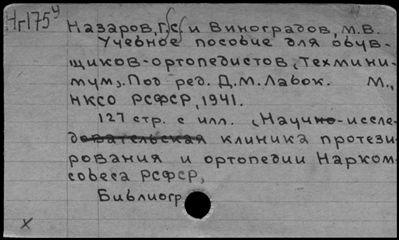 Нг175у
Назаров, Г.С. и Виноградов, М.В.
Учебное пособие для обув-
щиков-ортопедистов, (Техмини-
мум). Под ред. Д.М. Лабок. М.,
НКСО РСФСР, 1941.
127 стр. с илл. (Научно-иссле-
довательская клиника протези-
рования и ортопедии Нарком-
совеса РСФСР,
Библиогр
х